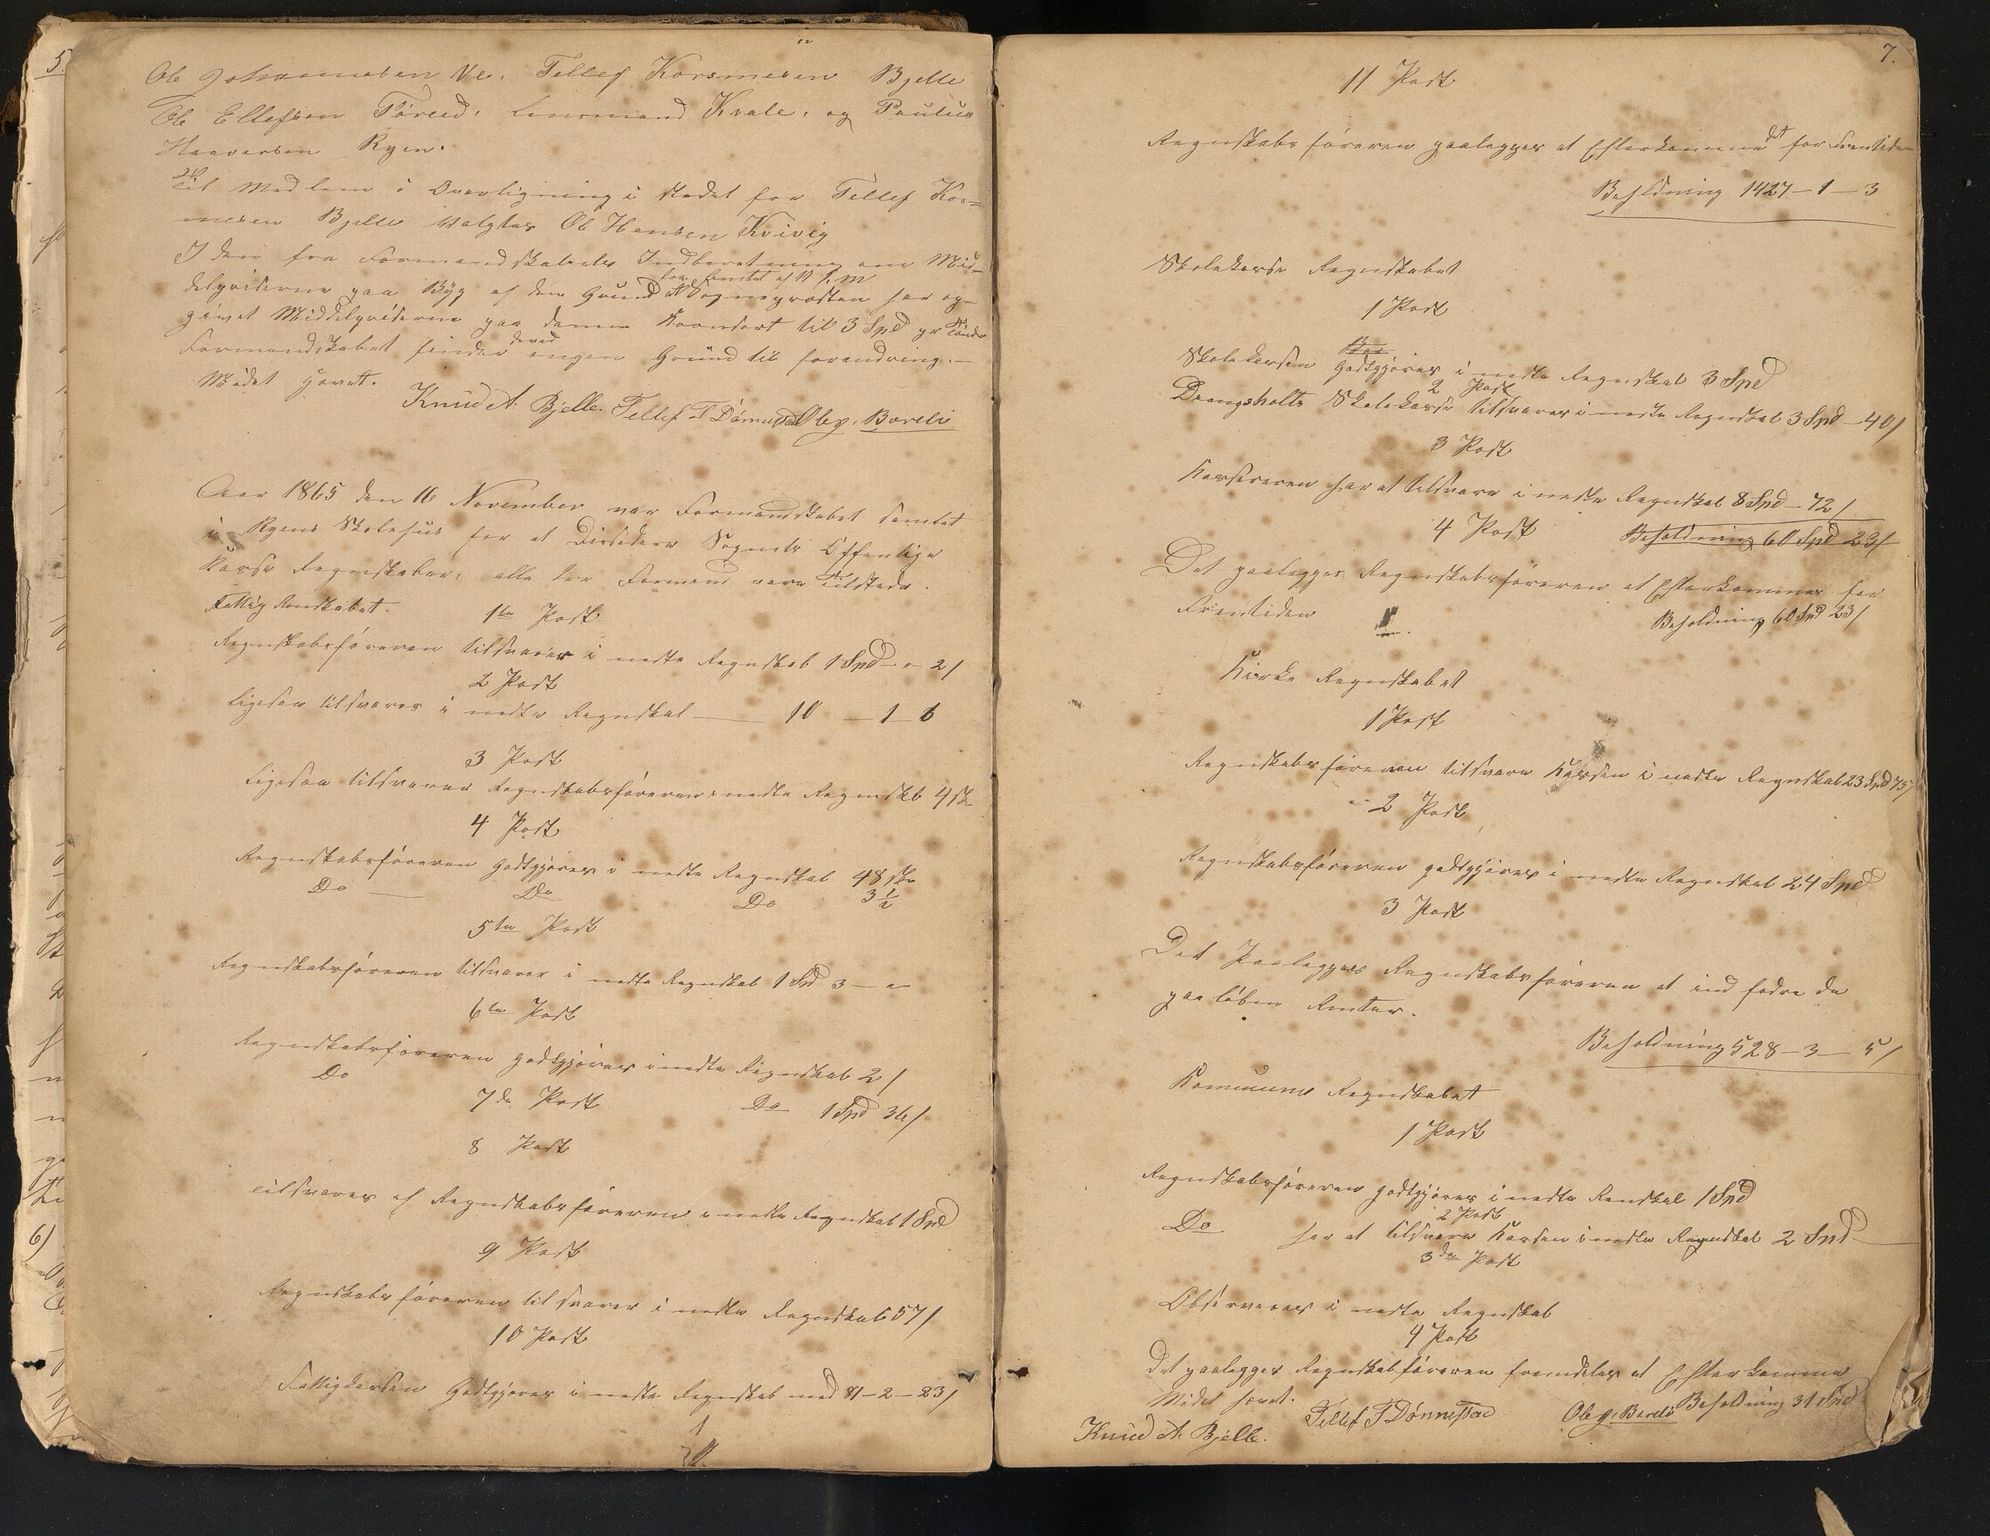 Ole Johannesen Ve, Tellef Korsmesen Bjelle
Ole Ellefsen Føreid, Lensmand Kvale, og Paulus
Haaversen Ryen.
Til Medlem i Overligning i Stedet for Tellef Kor=
mesen Bjelle valgtes Ole Hansen Kvivig
I den fra Formandskabets Indberetning om Mid-
delpriserne paa Byg af den Grund at Sognepræsten har op-
givet Middelpriserne paa denne Kornsort til 3 Spd pr Tønde
Formandskabet finder derved ingen Grund til forandring. –
Mødet hævet.
Knud A. Bjelle. Tellef T Dønnestad Ole J. Boreli
Aar 1865 den 16 November var Formandskabet samlet
i Ryens Skolehus for at Decidere Sognets Offentlige
Kasse Regnskaber, alle tre Formænd vare Tilstede.
Fattig Renskabet.
1te Post
Regnskabsføreren tilsvarer i neste Regnskab 1 Spd – " – 2/
2 Post
Ligesaa tilsvarer i neste Regnskab — 10 – 1 – 6
3 Post
Ligesaa tilsvarer Regnskabsføreren i neste Regnskb 4 sk
4 Post
Regnskabsføreren godtgjøres i neste Regnskab 48 sk
Do — Do Do 3 ½
5te Post
Regnskabsføreren tilsvarer i neste Regnskab 1 Spd 3 – "
6te Post
Regnskabsføreren godtgjøres i neste Regnskab 2/
Do
7de Post Do 1 Spd 36/
8 Post
tilsvares af Regnskabsføreren i neste Regnskab 1 Spd
9 Post
Regnskabsføreren tilsvarer i neste Regnskab 57/
10 Post
Fattigkassen Godtgjøres i neste Regnskab med 81 – 2 – 23/
7.
11 Post
Regnskabsføreren paalegges at Efterkomme det for Fremtiden
Beholdning 1427 – 1 – 3
Skolekasse Regnskabet
1 Post
Skolekassen Godtgjøres i neste Regnskab 3 Spd
2 Post
Drangsholts Skolekasse tilsvarer i neste Regnskab 3 Spd – 40/
3 Post
Kassereren har at tilsvare i neste Regnskab 8 Spd – 72/
4 Post Beholdning 60 Spd 23/
Det paalegges Regnskabsføreren at Efterkommes for
Fremtiden Beholdning 60 Spd 23/
Kirke Regnskabet
1 Post
Regnskabsføreren tilsvare Kassen i neste Regnskab 23 Spd 75/
2 Post
Regnskabsføreren godtgjøres i neste Regnskab 24 Spd
3 Post
Det Paalegges Regnskabsføreren at indfodre de
paaløben Renter.
Beholdning 528 – 3 – 5/
Kommune Regnskabet
1 Post
Regnskabsføreren godtgjøres i neste Renskab 1 Spd
2 Post
Do har at tilsvare Kassen i neste Regnskab 2 Spd
3de Post
Observeres i neste Regnskab
4 Post
Det paalegges Regnskabsføreren fremdeles at Efterkomme
Mødet hævet. Beholdning 31 Spd
Knud A. Bjelle. Tellef T Dønnestad Ole J. Boreli